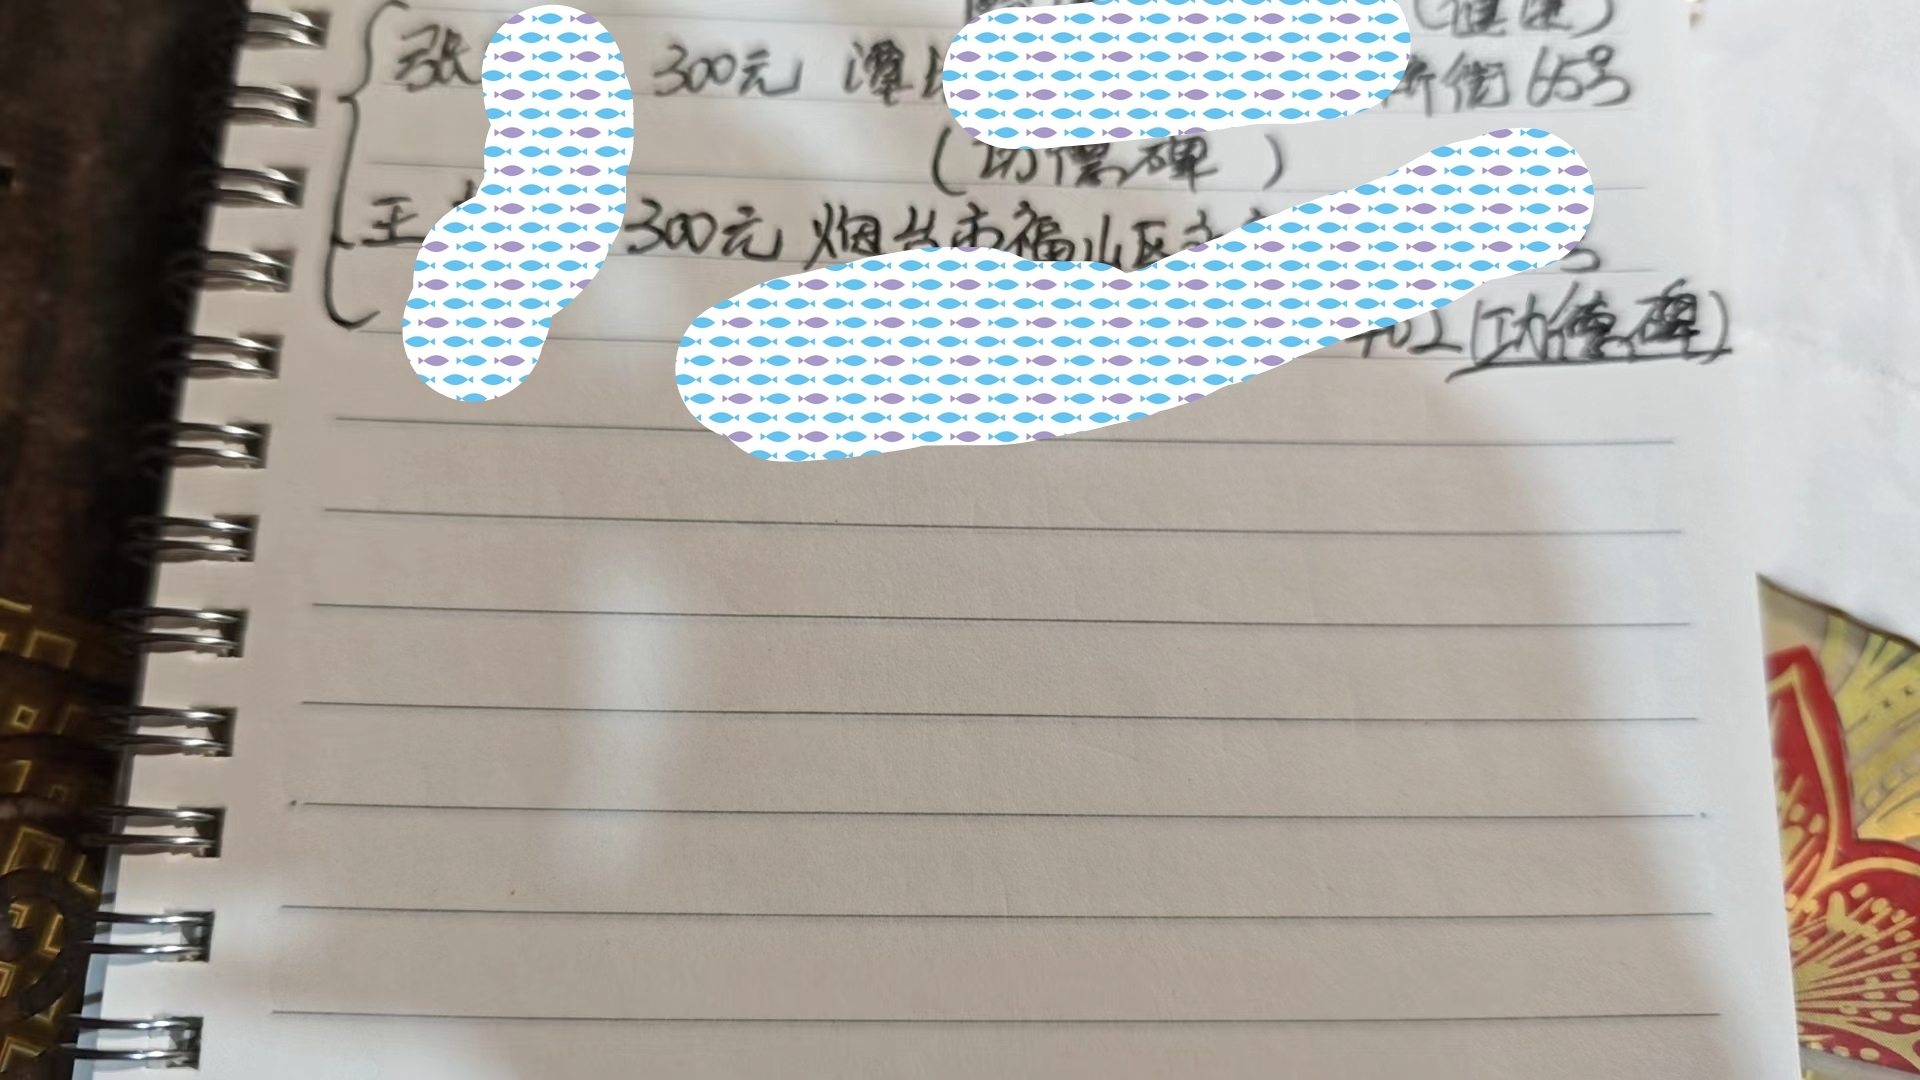 (健康)
张 300元 潭 街65号
(功德碑)
王 300元 烟台市福山区
402(功德碑)